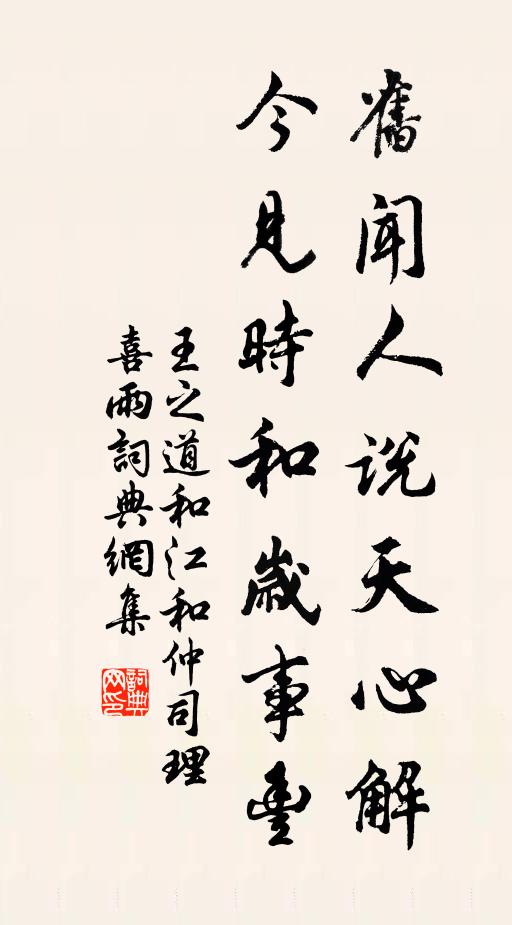 舊闻人说天心解
今見時和歲事豐
王之道和江和仲司理
喜雨詞典網集
詞典網印